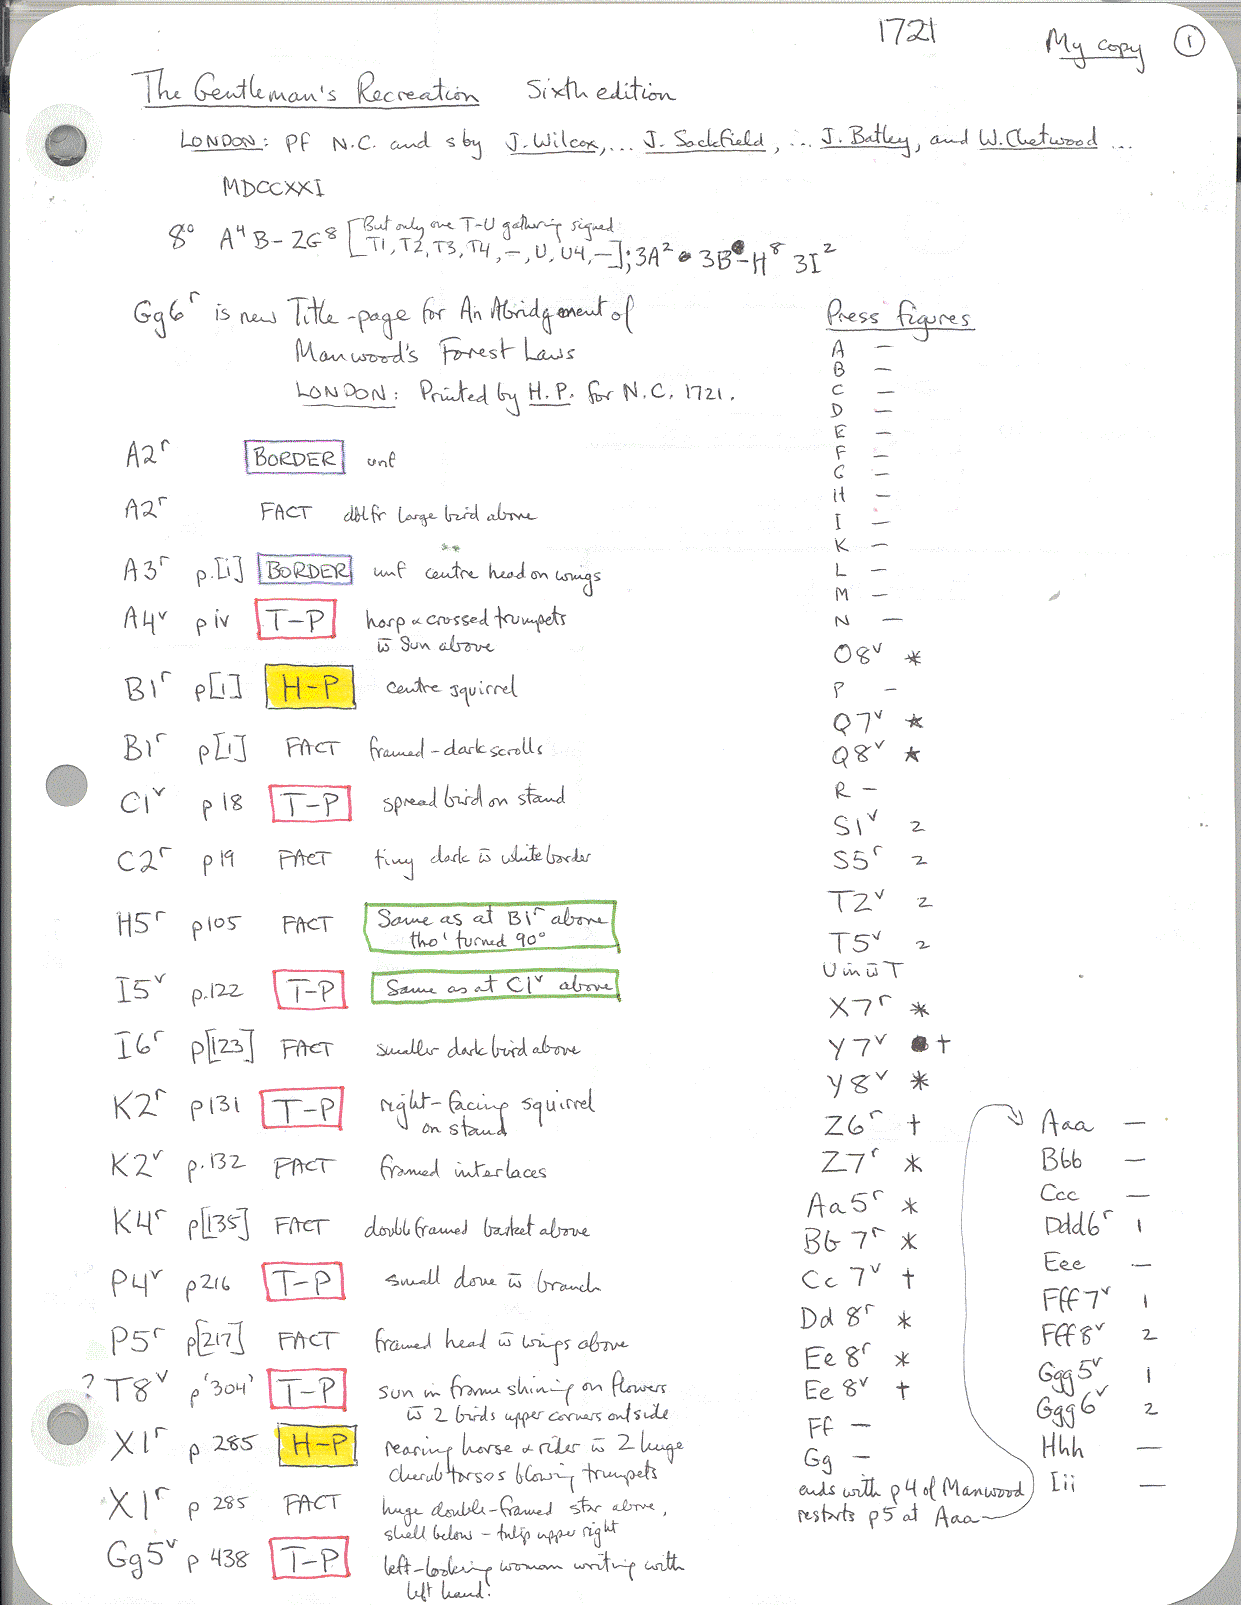 1721
My copy 1
The Gentleman's Recreation Sixth edition
LONDON: pf N.C. and sby J. Wilcox, ... J. Sackfield, ... J. Batley, and W. Chetwood ...
MDCCXXI
8° A⁴ B-2G⁸ [But only one T-U gathering signed
T1, T2, T3, T4, -, U, U4, -]; 3A² 3B-H⁸ 3I²
Gg6ʳ is new Title-page for An Abridgement of
Manwood's Forest Laws
LONDON: Printed by H.P. for N.C. 1721.
A2ʳ BORDER unf
A2ʳ FACT dblfr large bird above
A3ʳ p.[i] BORDER unf centre head on wings
A4ᵛ p iv T-P harp & crossed trumpets
w̄ sun above
B1ʳ p[1] H-P centre squirrel
B1ʳ p[1] FACT framed - dark scrolls
C1ᵛ p 18 T-P spread bird on stand
C2ʳ p 19 FACT tiny dark w̄ white border
H5ʳ p105 FACT Same as at B1ʳ above
tho' turned 90°
I5ᵛ p.122 T-P Same as at C1ᵛ above
I6ʳ p[123] FACT smaller dark bird above
K2ʳ p131 T-P right-facing squirrel
on stand
K2ᵛ p.132 FACT framed interlaces
K4ʳ p[135] FACT double framed basket above
P4ᵛ p216 T-P small dove w̄ branch
P5ʳ p[217] FACT framed head w̄ wings above
? T8ᵛ p'304' T-P sun in frame shining on flowers
w̄ 2 birds upper corners outside
X1ʳ p 285 H-P rearing horse & rider w̄ 2 huge
cherub torsos blowing trumpets
X1ʳ p 285 FACT huge double-framed star above,
shell below - tulip upper right
Gg5ᵛ p 438 T-P left-looking woman writing with
left hand!
Press figures
A -
B -
C -
D -
E -
F -
G -
H -
I -
K -
L -
M -
N -
O8ᵛ *
P -
Q7ᵛ *
Q8ᵛ *
R -
S1ᵛ 2
S5ʳ 2
T2ᵛ 2
T5ᵛ 2
U in w̄ T
X7ʳ *
Y7ᵛ †
Y8ᵛ *
Z6ʳ †
Z7ʳ *
Aa5ʳ *
Bb 7ʳ *
Cc 7ᵛ †
Dd 8ʳ *
Ee 8ʳ *
Ee 8ᵛ †
Ff -
Gg -
ends with p4 of Manwood
restarts p5 at Aaa
Aaa -
Bbb -
Ccc -
Ddd6ʳ 1
Eee -
Fff7ᵛ 1
Fff8ᵛ 2
Ggg5ᵛ 1
Ggg6ᵛ 2
Hhh -
Iii -